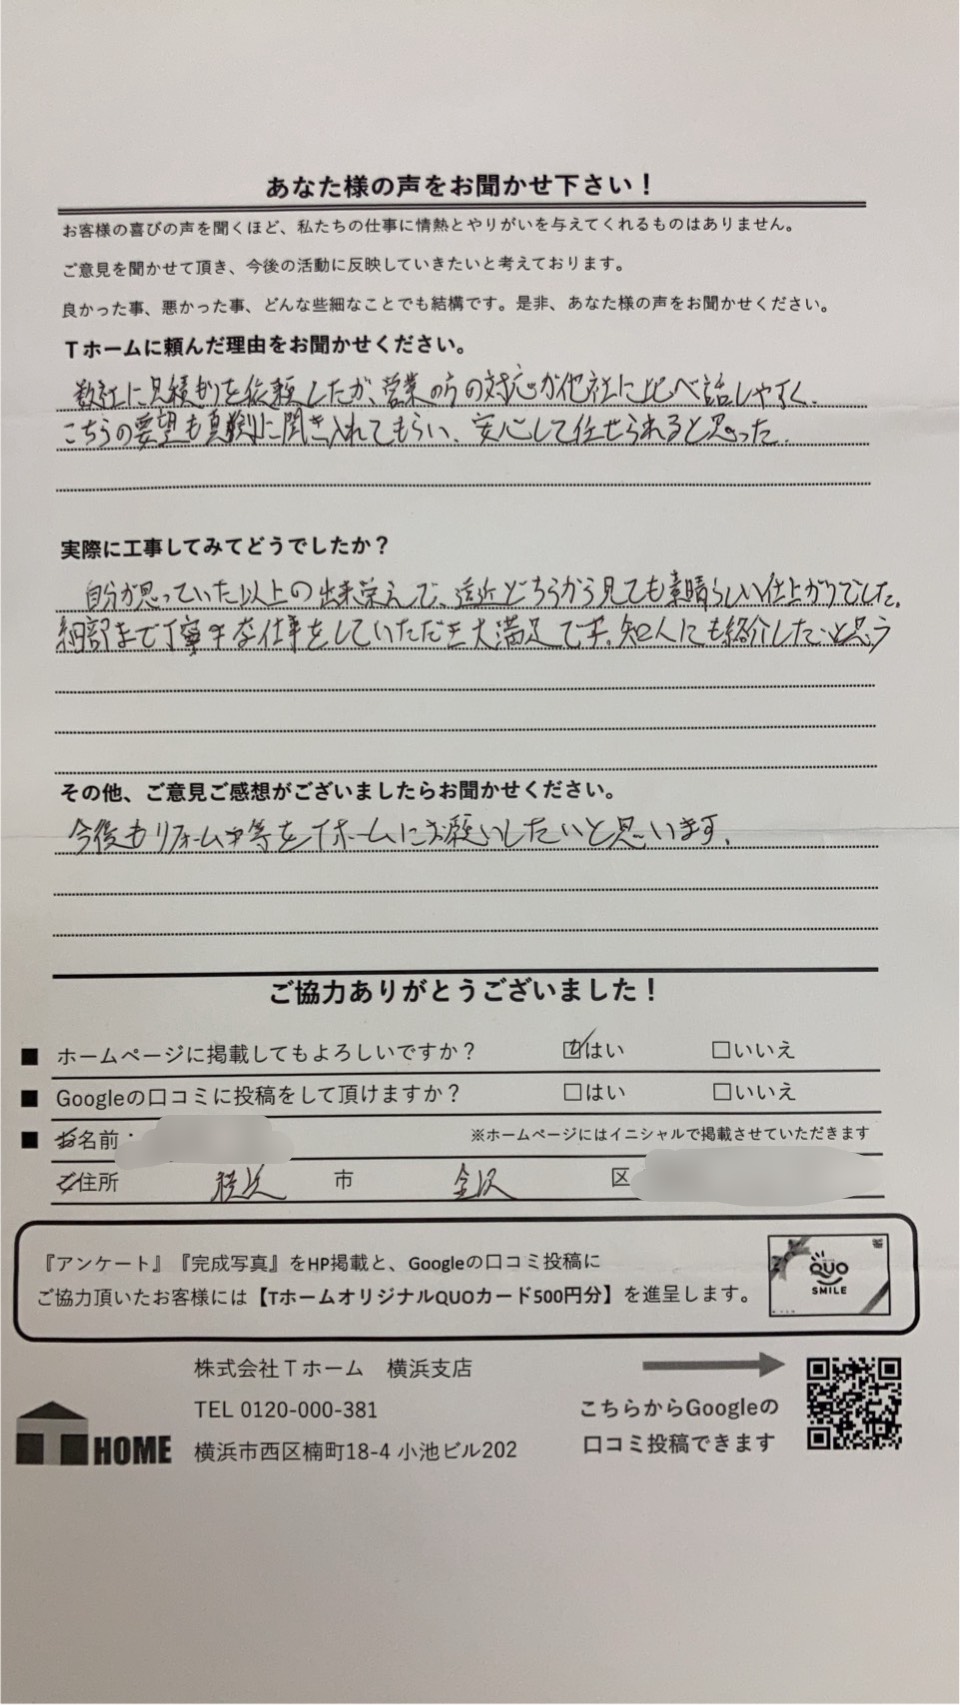 あなた様の声をお聞かせ下さい！
お客様の喜びの声を聞くほど、私たちの仕事に情熱とやりがいを与えてくれるものはありません。
ご意見を聞かせて頂き、今後の活動に反映していきたいと考えております。
良かった事、悪かった事、どんな些細なことでも結構です。是非、あなた様の声をお聞かせください。
Tホームに頼んだ理由をお聞かせください。
数社に見積もりを依頼したが、営業の方の対応が他社に比べ話しやすく、
こちらの要望も真剣に聞き入れてもらい、安心して任せられると思った。
実際に工事してみてどうでしたか？
自分が思っていた以上の出来栄えで、遠近どちらから見ても素晴らしい仕上がりでした。
細部まで丁寧な仕事をしていただき大満足です。知人にも紹介したいと思う
その他、ご意見ご感想がございましたらお聞かせください。
今後もリフォーム等をTホームにお願いしたいと思います。
ご協力ありがとうございました！
■ ホームページに掲載してもよろしいですか？ ☑はい □いいえ
■ Googleの口コミに投稿をして頂けますか？ □はい □いいえ
■ お名前： ※ホームページにはイニシャルで掲載させていただきます
ご住所 横浜 市 金沢 区
『アンケート』『完成写真』をHP掲載と、Googleの口コミ投稿に
ご協力頂いたお客様には【TホームオリジナルQUOカード500円分】を進呈します。
QUO
SMILE
株式会社Tホーム 横浜支店
TEL 0120-000-381
横浜市西区楠町18-4 小池ビル202
T HOME
こちらからGoogleの
口コミ投稿できます